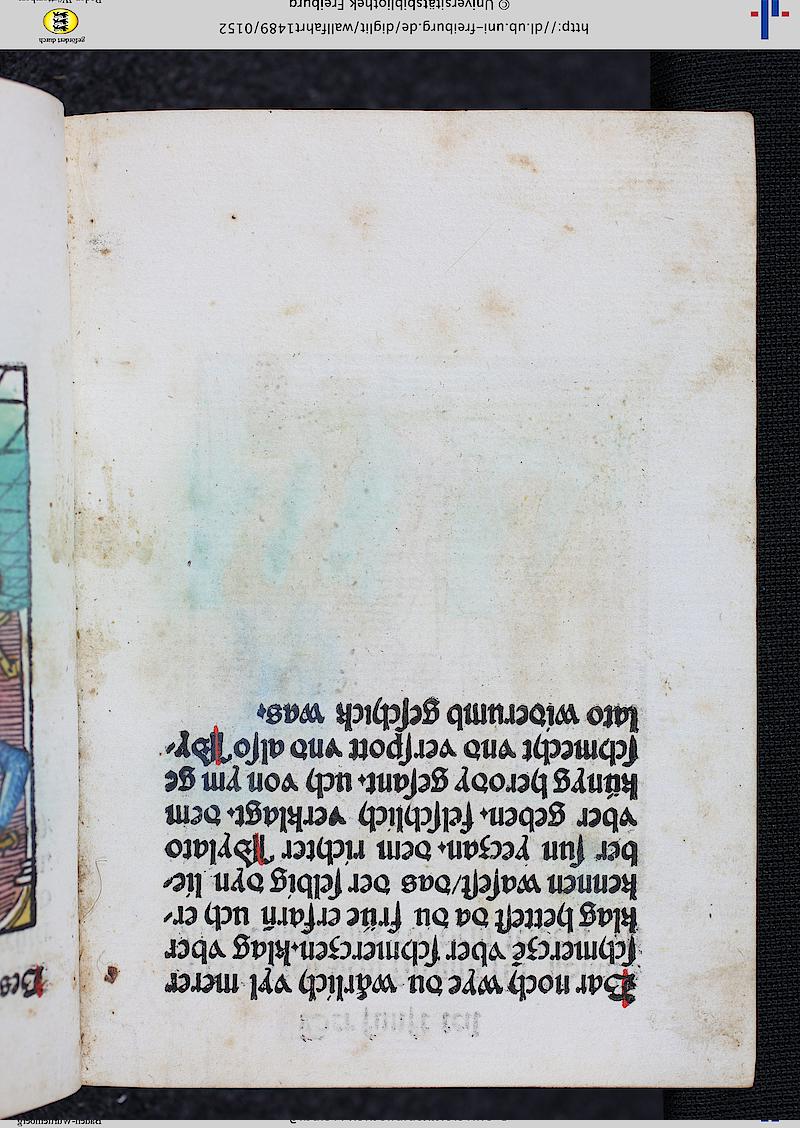 Dar noch wye du wårlich vyl merer
ſchmerczē vber ſchmerczen.klag vber
klag hetteſt da du früe erfarn uch er⸗
kennen waſeſt/das der ſelbig dyn lie⸗
ber ſun yeczan.dem richter Pylato
vber geben.felſchlich verklagt.dem
künyg herody geſant.uch von ym ge
ſchmecht vnd verſpott vnd alſo Py⸗
lato widerumb geſchick was.
Des
http://dl.ub.uni-freiburg.de/diglit/wallfahrt1489/0152
© Universitätsbibliothek Freiburg
gefördert durch
Baden-Württemberg